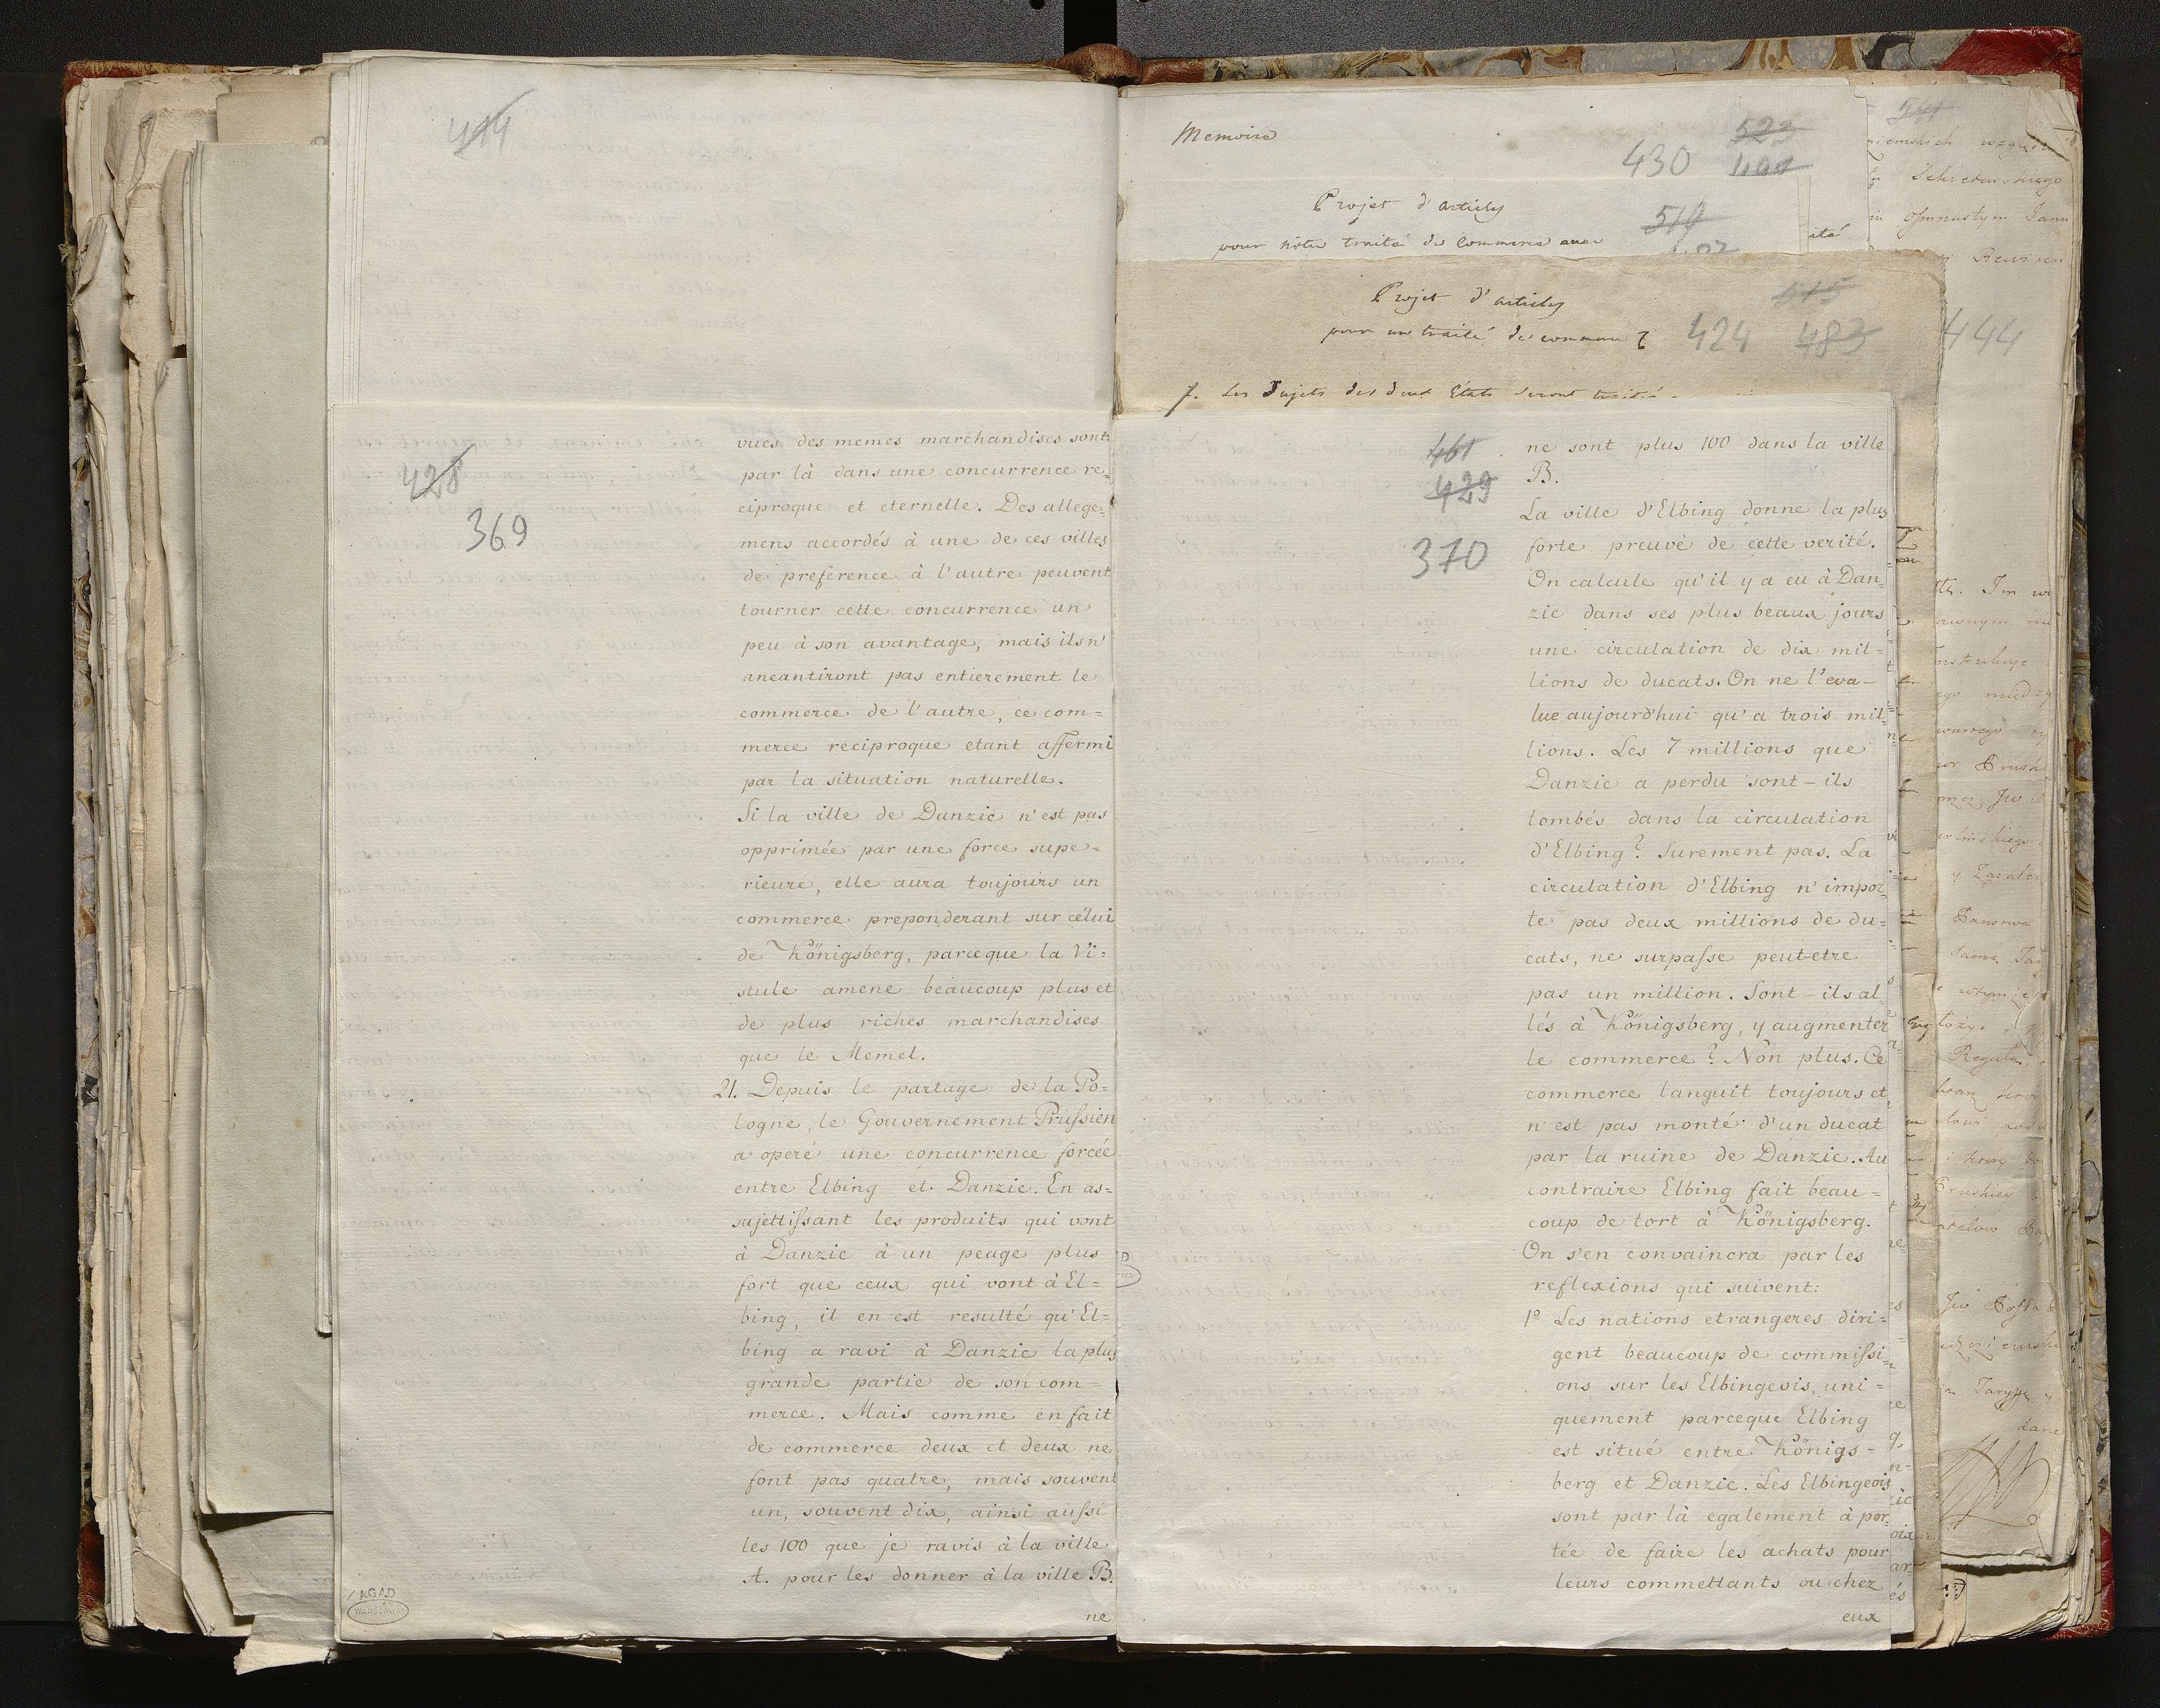 414
428
369
vues des memes marchandises sont
par là dans une concurrence re=
ciproque et eternelle. Des allege=
mens accordés à une de ces villes
de preference à l'autre peuvent
tourner cette concurrence un
peu à son avantage, mais ils n'
aneantiront pas entierement le
commerce de l'autre, ce com=
merce reciproque etant affermi
par la situation naturelle.
Si la ville de Danzic n'est pas
opprimée par une force supe=
rieure, elle aura toujours un
commerce preponderant sur célui
de Königsberg, parceque la Vi=
stule amene beaucoup plus et
de plus riches marchandises
que le Memel.
21. Depuis le partage de la Po=
logne, le Gouvernement Prussien
a operé une concurrence forcée
entre Elbing et Danzic. En as=
sujettissant les produits qui vont
à Danzic à un peage plus
fort que ceux qui vont à El=
bing, il en est resulté qu'El=
bing a ravi à Danzic la plus
grande partie de son com=
merce. Mais comme en fait
de commerce deux et deux ne
font pas quatre, mais souvent
un, souvent dix, ainsi aussi
les 100 que je ravis à la ville
A. pour les donner à la ville B.
ne
AGAD
WARSZAWA
Memoire
523
430
Projet d'articles
510
pour nôtre traité de Commerce avec
Projet d'articles
515
pour un traité de commerce
424 483
1. Les Sujets des deux Etats seront
461
429
370
ne sont plus 100 dans la ville
B.
La ville d'Elbing donne la plus
forte preuve de cette verité.
On calcule qu'il y a eu à Dan=
zic dans ses plus beaux jours
une circulation de dix mil=
lions de ducats. On ne l'eva-
lue aujourd'hui qu'a trois mil=
lions. Les 7 millions que
Danzic a perdu sont-ils
tombés dans la circulation
d'Elbing? Surement pas. La
circulation d'Elbing n'impor=
te pas deux millions de du=
cats, ne surpasse peut-etre
pas un million. Sont-ils al=
lés à Königsberg, y augmenter
le commerce? Non plus. Ce
commerce languit toujours et
n'est pas monté d'un ducat
par la ruine de Danzic. Au
contraire Elbing fait beau=
coup de tort à Königsberg.
On s'en convaincra par les
reflexions qui suivent:
1º Les nations etrangeres diri=
gent beaucoup de commissi=
ons sur les Elbingeois, uni=
quement parceque Elbing
est situé entre Königs=
berg et Danzic. Les Elbingeois
sont par là egalement à por=
tée de faire les achats pour
leurs commettants ou chez
eux
444